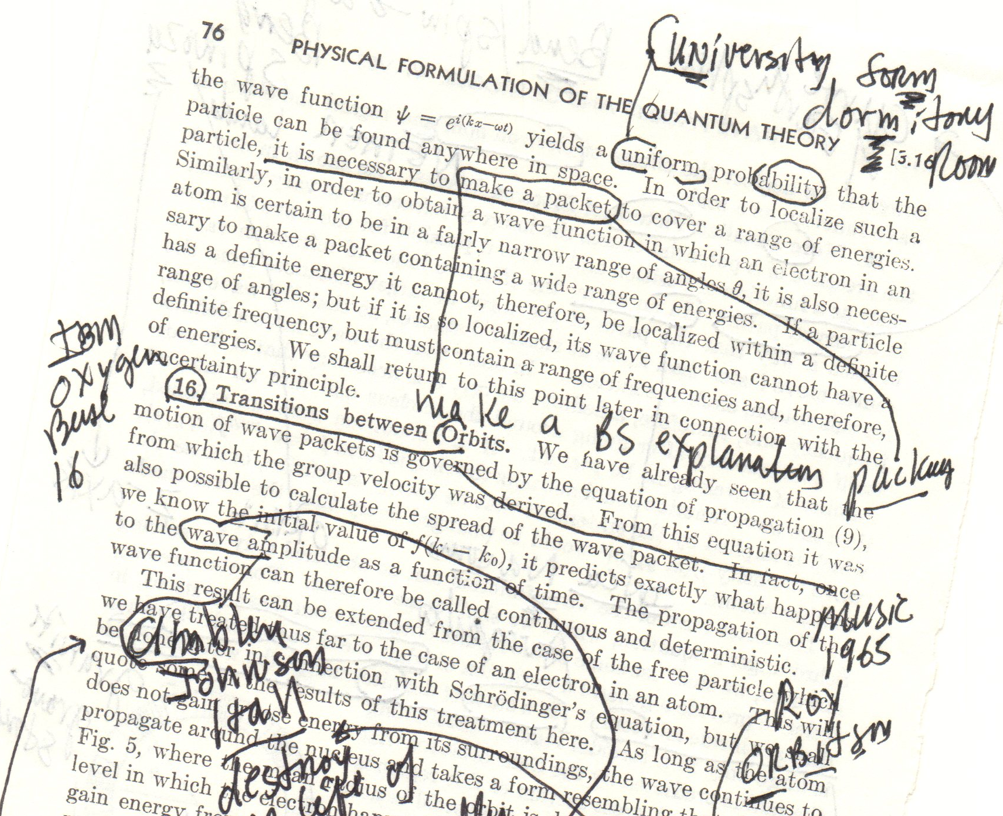 76
PHYSICAL FORMULATION OF THE QUANTUM THEORY
[3.16
University, form
dormitory
Room
the wave function ψ = e^{i(kx−ωt)} yields a uniform probability that the
particle can be found anywhere in space. In order to localize such a
particle, it is necessary to make a packet to cover a range of energies.
Similarly, in order to obtain a wave function in which an electron in an
atom is certain to be in a fairly narrow range of angles θ, it is also neces-
sary to make a packet containing a wide range of energies. If a particle
has a definite energy it cannot, therefore, be localized within a definite
range of angles; but if it is so localized, its wave function cannot have a
definite frequency, but must contain a range of frequencies and, therefore,
of energies. We shall return to this point later in connection with the
uncertainty principle.
IBM
oxygen
Base
16
make a BS explanation
packing
16. Transitions between Orbits. We have already seen that the
motion of wave packets is governed by the equation of propagation (9),
from which the group velocity was derived. From this equation it was
also possible to calculate the spread of the wave packet. In fact, once
we know the initial value of f(k − k₀), it predicts exactly what happens
to the wave amplitude as a function of time. The propagation of the
wave function can therefore be called continuous and deterministic.
music
1965
Roy
ORBITSON
This result can be extended from the case of the free particle which
we have treated thus far to the case of an electron in an atom. This will
be done later in connection with Schrödinger's equation, but we shall
quote some of the results of this treatment here. As long as the atom
does not gain or lose energy from its surroundings, the wave continues to
propagate around the nucleus and takes a form resembling
Fig. 5, where the mean radius of the orbit is
level in which the electron
gain energy
Johnson
destroy of
left